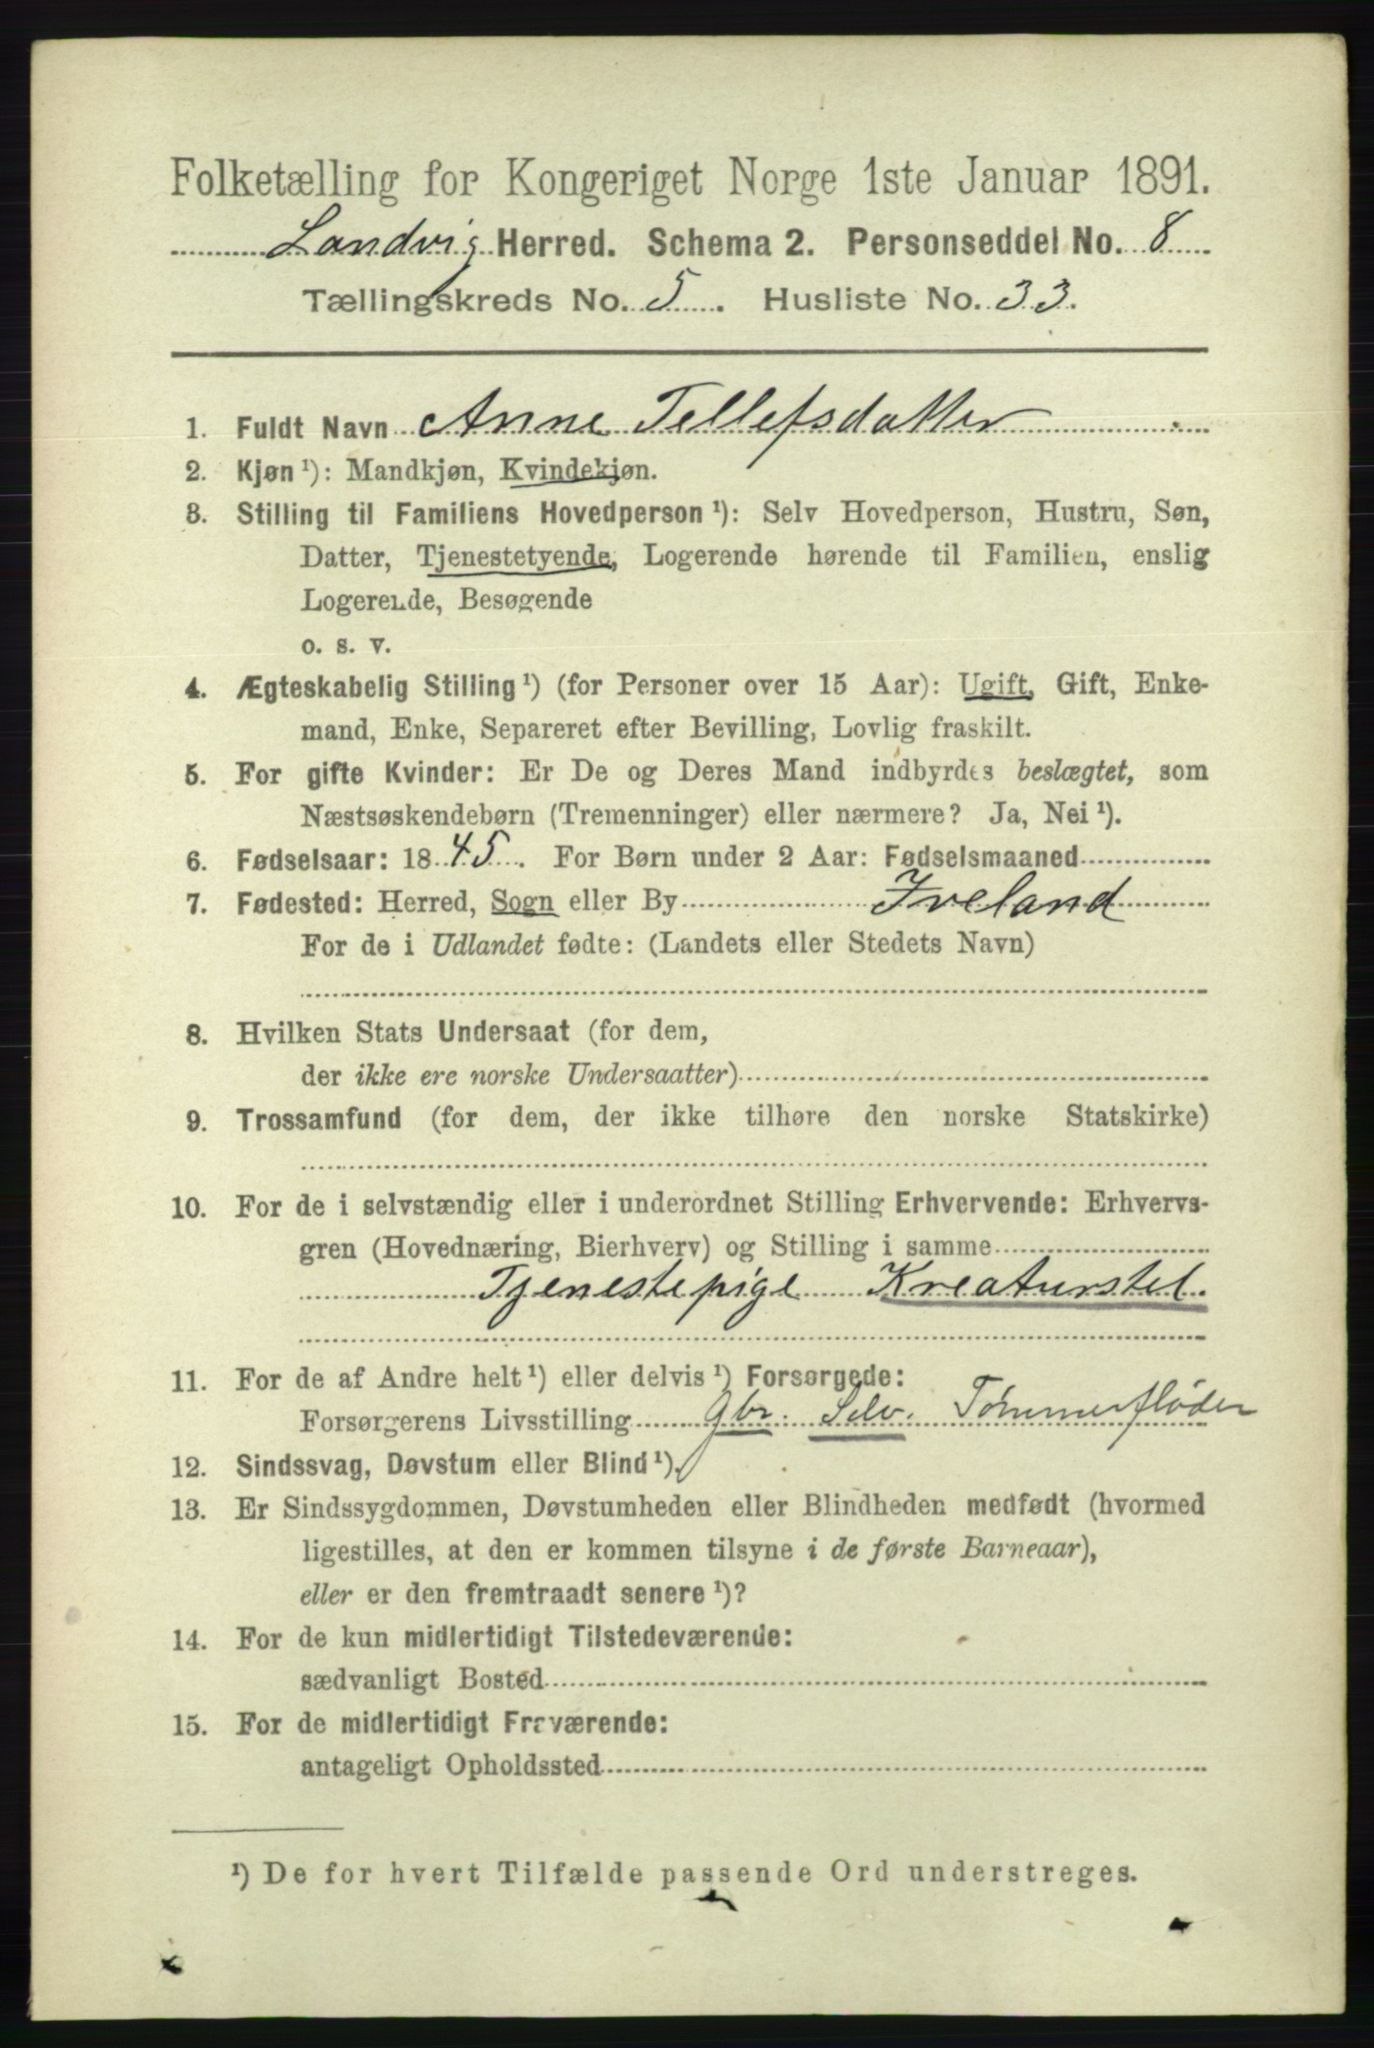 Folketælling for Kongeriget Norge 1ste Januar 1891.
Landvig Herred. Schema 2. Personseddel No. 8
Tællingskreds No. 5. Husliste No. 33.
1. Fuldt Navn Anne Tellefsdatter
2. Kjøn ¹): Mandkjøn, Kvindekjøn.
3. Stilling til Familiens Hovedperson ¹): Selv Hovedperson, Hustru, Søn,
Datter, Tjenestetyende, Logerende hørende til Familien, enslig
Logerende, Besøgende
o. s. v.
4. Ægteskabelig Stilling ¹) (for Personer over 15 Aar): Ugift, Gift, Enke-
mand, Enke, Separeret efter Bevilling, Lovlig fraskilt.
5. For gifte Kvinder: Er De og Deres Mand indbyrdes beslægtet, som
Næstsøskendebørn (Tremenninger) eller nærmere? Ja, Nei ¹).
6. Fødselsaar: 1845. For Børn under 2 Aar: Fødselsmaaned
7. Fødested: Herred, Sogn eller By Iveland
For de i Udlandet fødte: (Landets eller Stedets Navn)
8. Hvilken Stats Undersaat (for dem,
der ikke ere norske Undersaatter)
9. Trossamfund (for dem, der ikke tilhøre den norske Statskirke)
10. For de i selvstændig eller i underordnet Stilling Erhvervende: Erhvervs-
gren (Hovednæring, Bierhverv) og Stilling i samme
Tjenestepige Kreaturstel.
11. For de af Andre helt ¹) eller delvis ¹) Forsørgede:
Forsørgerens Livsstilling Gbr. Selv. Tømmerfløder
12. Sindssvag, Døvstum eller Blind ¹).
13. Er Sindssygdommen, Døvstumheden eller Blindheden medfødt (hvormed
ligestilles, at den er kommen tilsyne i de første Barneaar),
eller er den fremtraadt senere ¹)?
14. For de kun midlertidigt Tilstedeværende:
sædvanligt Bosted
15. For de midlertidigt Fraværende:
antageligt Opholdssted
¹) De for hvert Tilfælde passende Ord understreges.